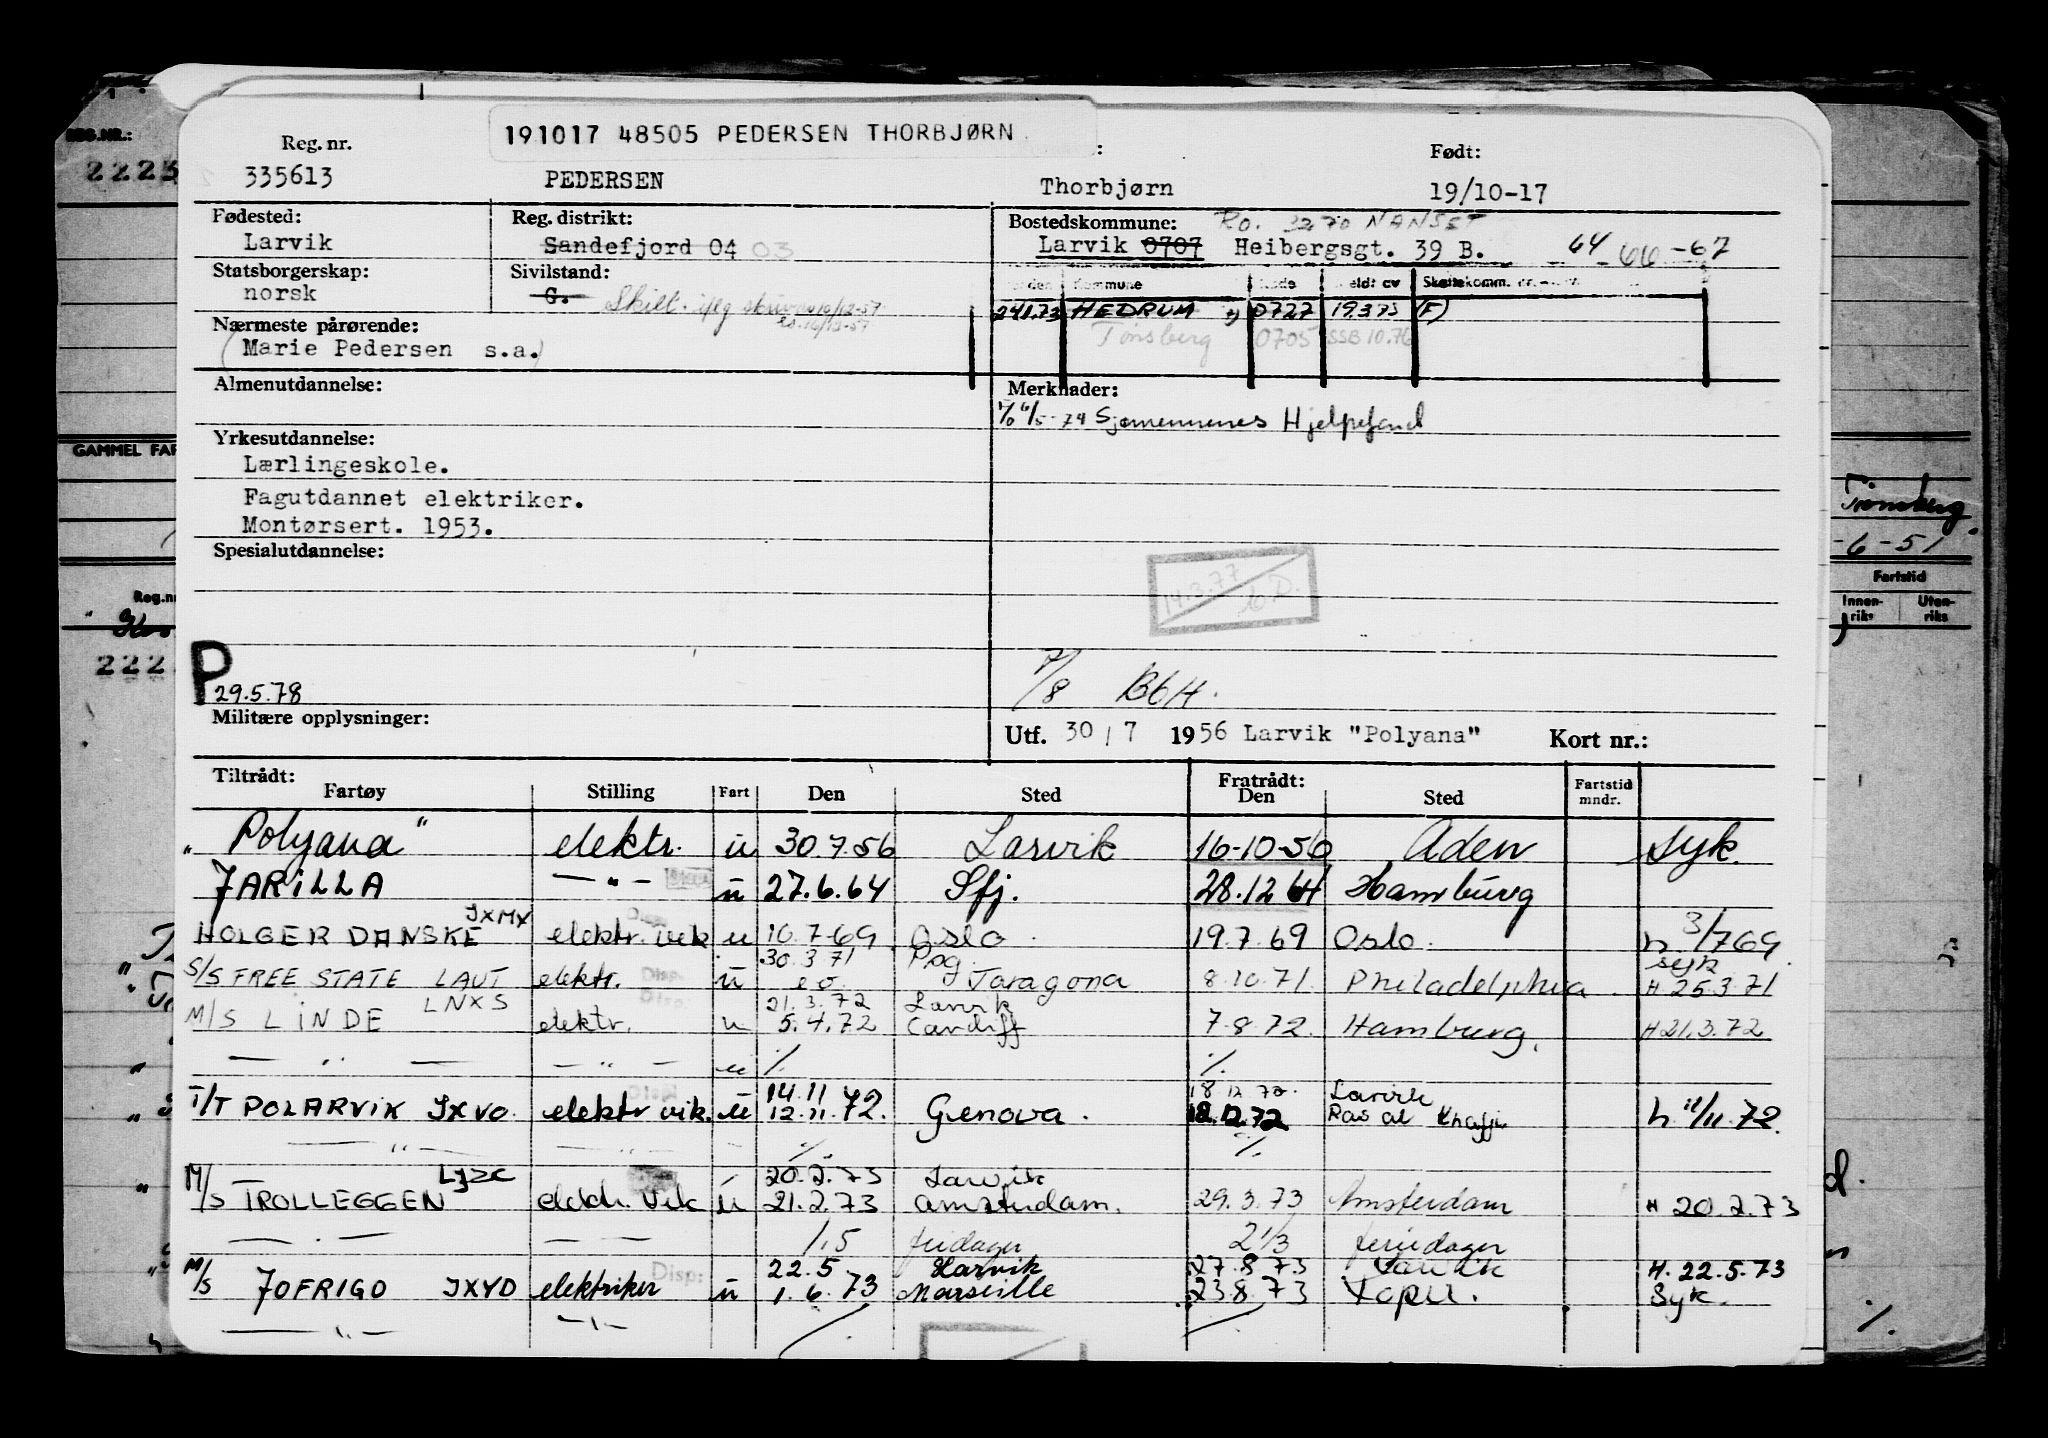 191017 48505 PEDERSEN THORBJØRN
Reg. nr. Født:
335613 PEDERSEN Thorbjørn 19/10-17
Fødested: Reg. distrikt: Bostedskommune: 3270 NANSET
Larvik Sandefjord 04 03 Larvik 0707 Heibergsgt. 39 B. 64 - 66 - 67
Statsborgerskap: Sivilstand:
norsk G. Skilt.
241.73 HEDRUM 0727 19373 (F)
Nærmeste pårørende: Tønsberg 0705 SSB 10.76
(Marie Pedersen s.a.)
Almenutdannelse: Merknader:
74 Sjømennenes Hjelpefond
Yrkesutdannelse:
Lærlingeskole.
Fagutdannet elektriker.
Montørsert. 1953.
Spesialutdannelse:
14.3.77
P
29.5.78
7/8
Militære opplysninger: Utf. 30 / 7 1956 Larvik "Polyana" Kort nr.:
Tiltrådt: Fratrådt: Fartstid
Fartøy Stilling Fart Den Sted Den Sted mndr.
"Polyana" elektr. u 30.7.56 Larvik 16-10-56 Aden syk.
JARILLA —"— u 27.6.64 Sfj. 28.12 64 Hamburg
JXMX
HOLGER DANSKE elektr. vik u 10.7.69 Oslo 19.7.69 Oslo. h 3/769
30.3 71 Pog. syk
S/S FREE STATE LAUT elektr. Disp. u Taragona 8.10.71. Philadelphia H 25.3.71
LNXS 21.3.72 Larvik
M/S LINDE elektr. u 5.4.72 Cardiff 7.8.72. Hamburg. H 21.3.72
— " — — " — u % %
14.11 18.12.72. Larvik
T/T POLARVIK JXVO. elektr vik. u 12.11.72. Genova. 18.12.72 Ras al Khafji h 11/11.72.
— " — — " — % %
LJZC 20.2.73 Larvik
M/S TROLLEGGEN elektr. Vik u 21.2.73 Amsterdam. 29.3.73 Amsterdam H 20.2.73
— " — — — 1,5 feridager 2 1/3 feriedager
22.5. Larvik 27.8.73 Larvik H. 22.5.73
M/S JOFRIGO JXYD elektriker Disp: u 1.6.73 Marseille 23.8.73 Syk.
— " — — " —
REG.NR.:
2223
GAMMEL FAR
Reg.n
222
Tønsberg
-6-51
Fartstid
Innen- Uten-
riks riks
%